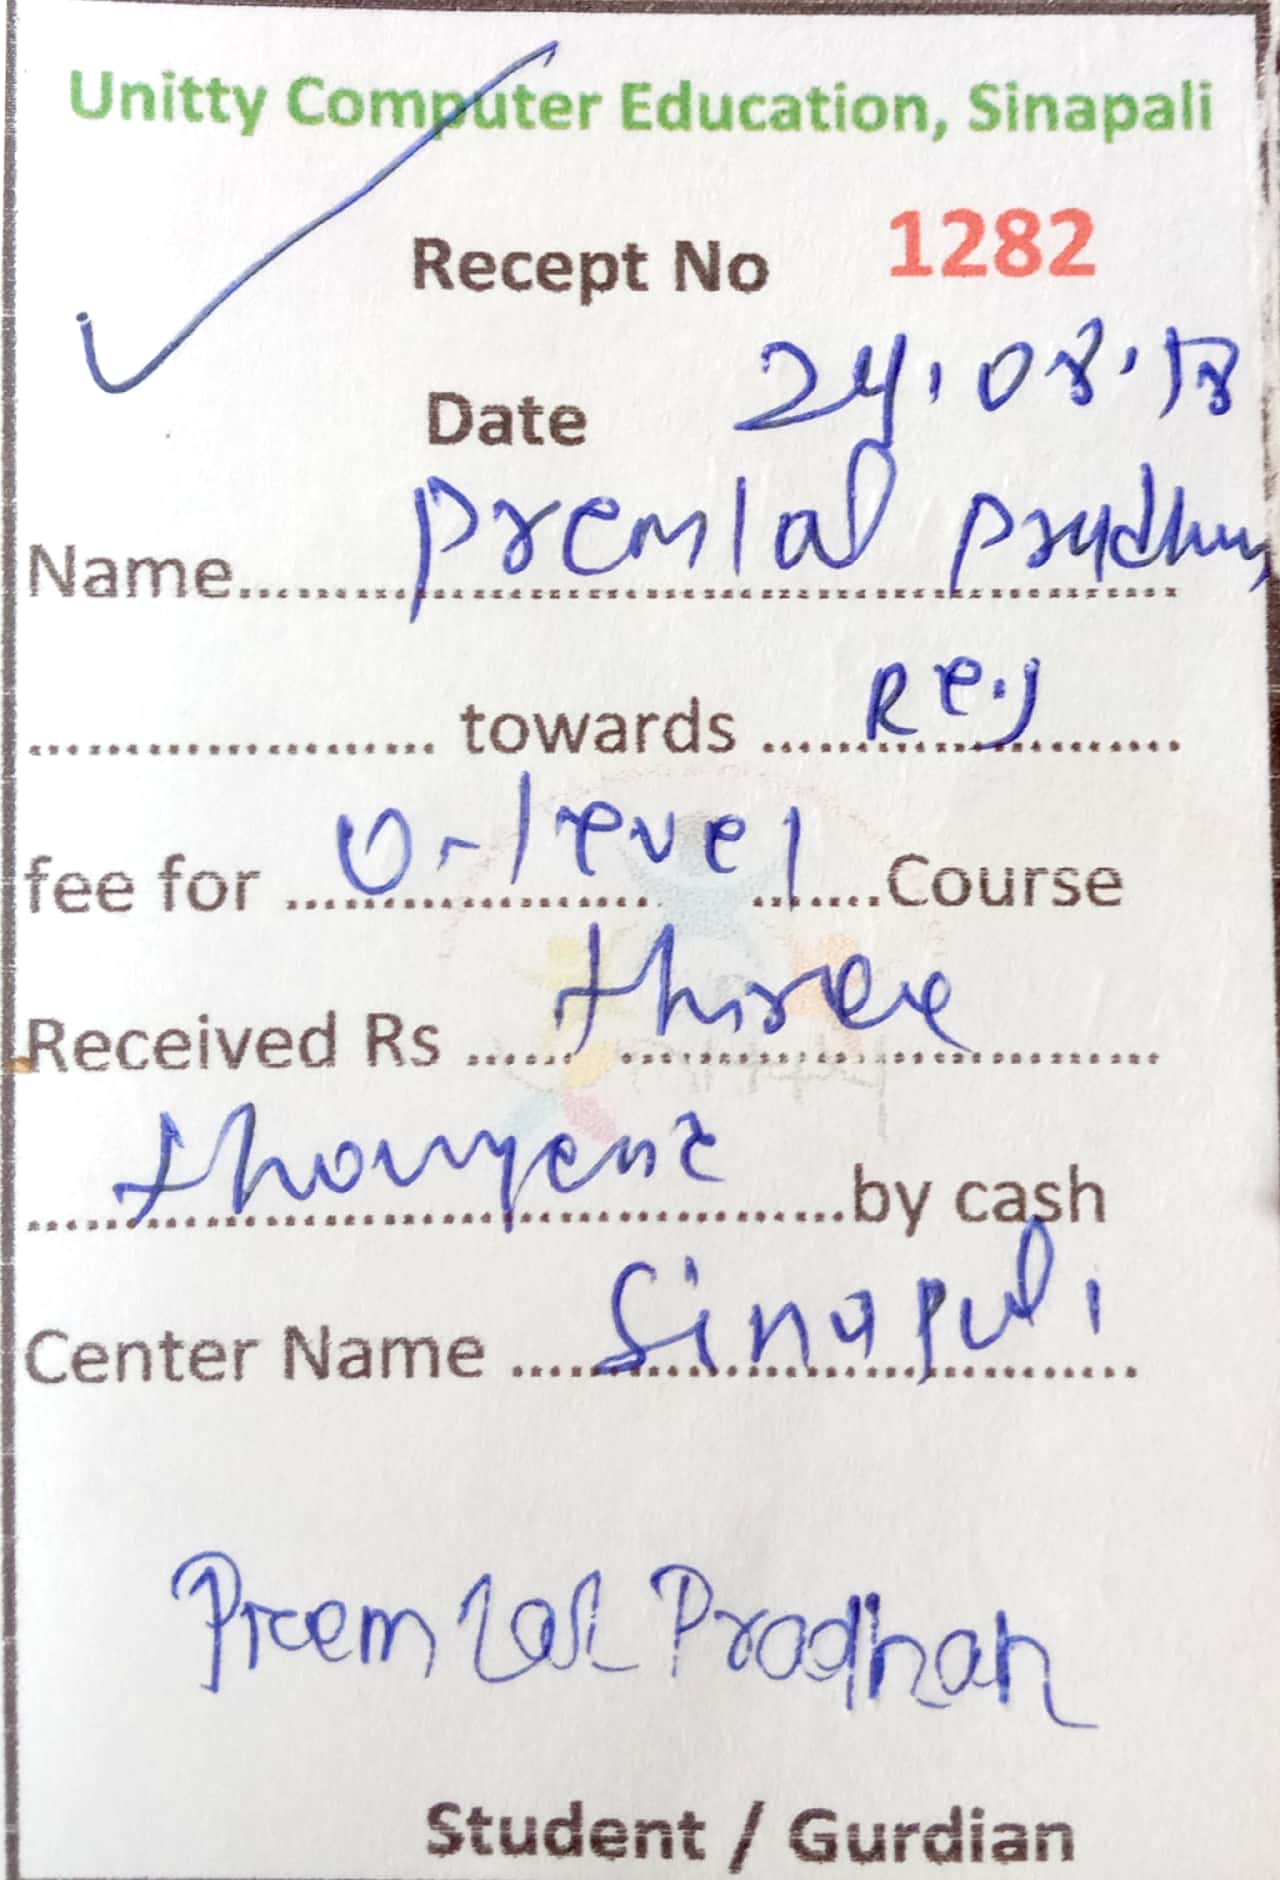 Unitty Computer Education, Sinapali
Recept No 1282
Date 24.08.18
Name Premlal Pradhan
towards Reg
fee for O-level Course
Received Rs three
by cash
Center Name Sinapali
Premlal Pradhan
Student / Gurdian